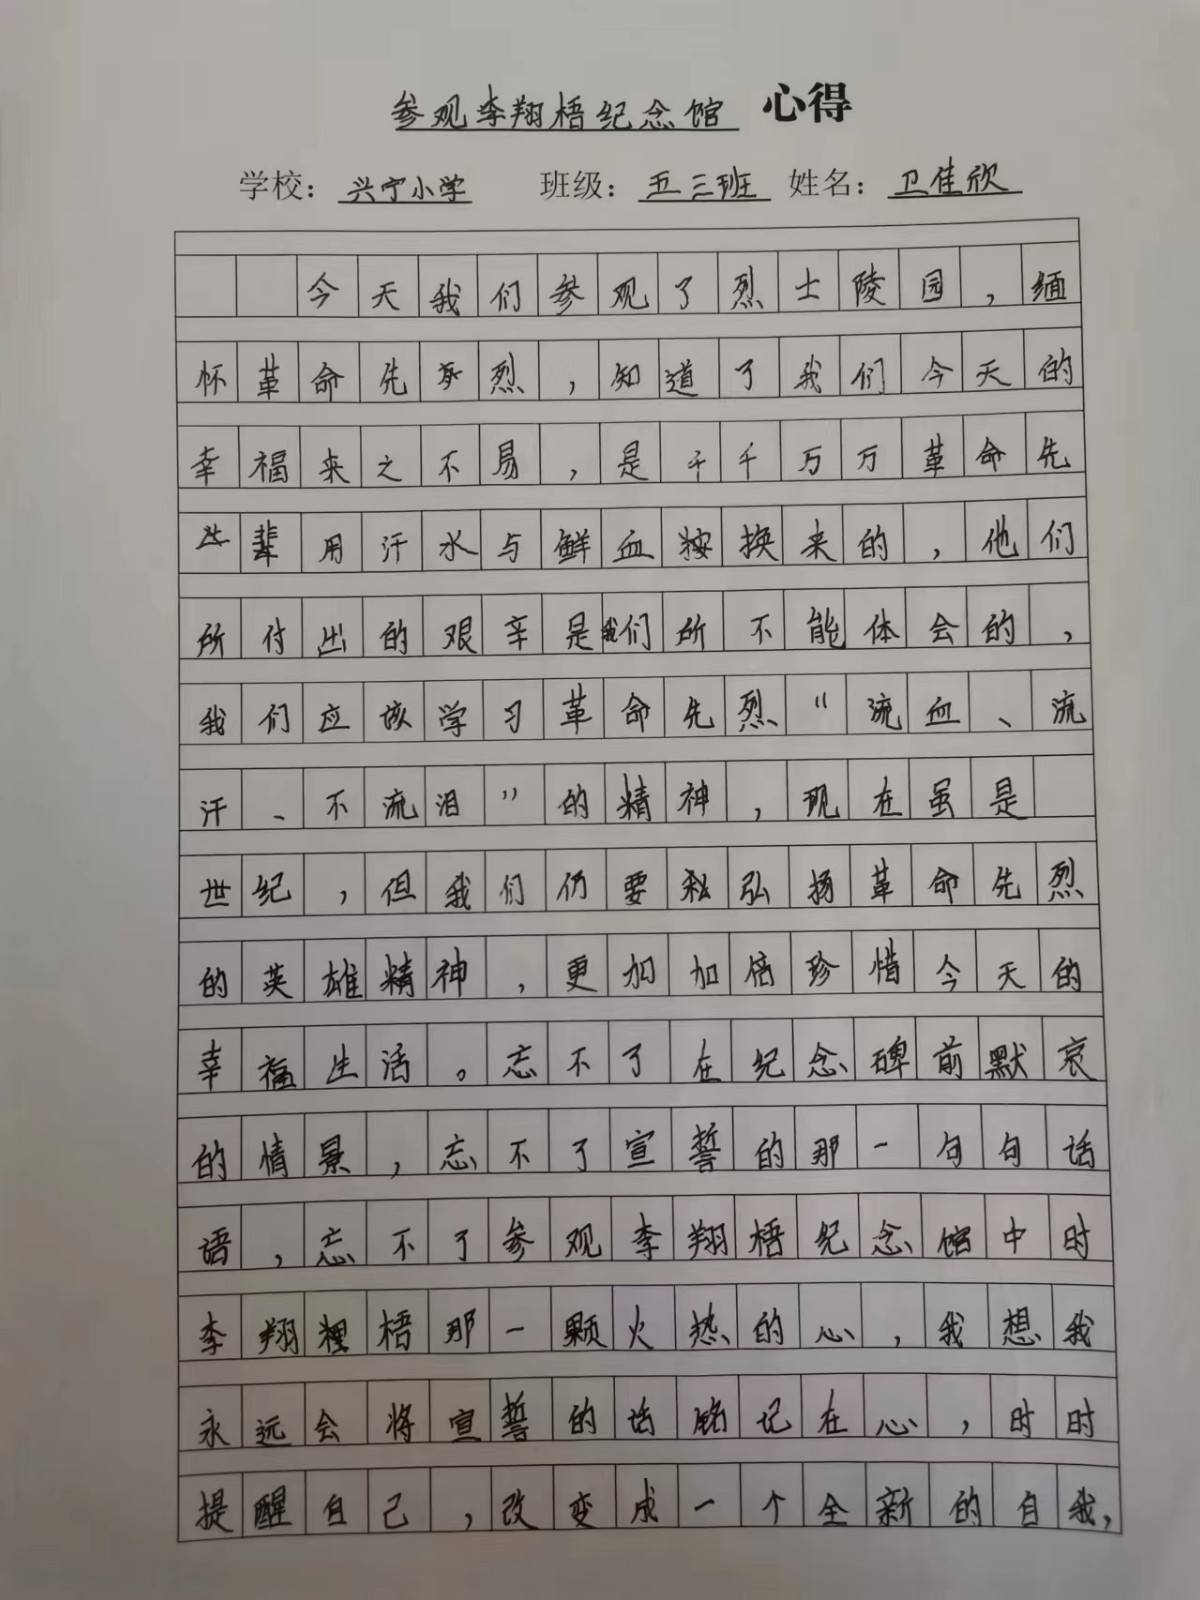 参观李翔梧纪念馆 心得
学校：兴宁小学 班级：五三班 姓名：卫佳欣
今天我们参观了烈士陵园，缅
怀革命先烈，知道了我们今天的
幸福来之不易，是千千万万革命先
辈用汗水与鲜血换来的，他们
所付出的艰辛是我们所不能体会的，
我们应该学习革命先烈“流血、流
汗、不流泪”的精神，现在虽是
世纪，但我们仍要弘扬革命先烈
的英雄精神，更加加倍珍惜今天的
幸福生活。忘不了在纪念碑前默哀
的情景，忘不了宣誓的那一句句话
语，忘不了参观李翔梧纪念馆中时
李翔梧那一颗火热的心，我想我
永远会将宣誓的话铭记在心，时时
提醒自己，改变成一个全新的自我，